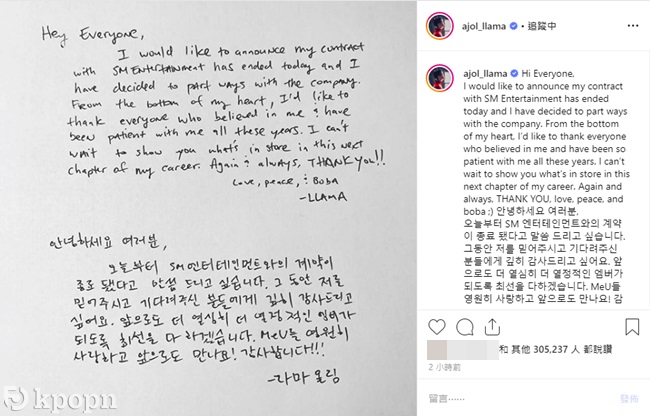 Hey Everyone,
I would like to announce my contract
with SM Entertainment has ended today and I
have decided to part ways with the company.
From the bottom of my heart, I'd like to
thank everyone who believed in me & have
been patient with me all these years. I can't
wait to show you what's in store in this next
chapter of my career. Again & always, THANK YOU!!
Love, peace, & Boba
-LLAMA
안녕하세요 여러분,
오늘부터 SM엔터테인먼트와의 계약이
종료 됐다고 말씀 드리고 싶습니다. 그 동안 저를
믿어주시고 기다려주신 분들에게 깊히 감사드리고
싶어요. 앞으로도 더 열심히 더 열정적인 엠버가
되도록 최선을 다 하겠습니다. MeU들 영원히
사랑하고 앞으로도 만나요! 감사합니다!!!
-라마 올림
kpopn
ajol_llama • 追蹤中
ajol_llama Hi Everyone,
I would like to announce my contract
with SM Entertainment has ended
today and I have decided to part ways
with the company. From the bottom
of my heart, I'd like to thank everyone
who believed in me and have been so
patient with me all these years. I can't
wait to show you what's in store in
this next chapter of my career. Again and
always, THANK YOU, love, peace, and
boba ;) 안녕하세요 여러분,
오늘부터 SM 엔터테인먼트와의 계약
이 종료 됐다고 말씀 드리고 싶습니다.
그동안 저를 믿어주시고 기다려주신
분들에게 깊히 감사드리고 싶어요. 앞
으로도 더 열심히 더 열정적인 엠버가
되도록 최선을 다하겠습니다. MeU들
영원히 사랑하고 앞으로도 만나요! 감
和 其他 305,237 人 都說讚
2 小時前
留言⋯⋯
發佈